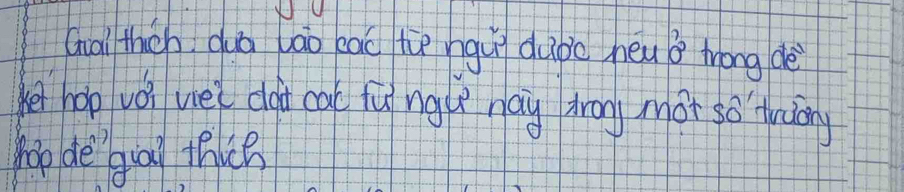 Giải thích: dựa vào các từ ngữ được nêu ở trong đề
kết hợp với việc đặt các từ ngữ này trong một số trường
hợp để giải thích